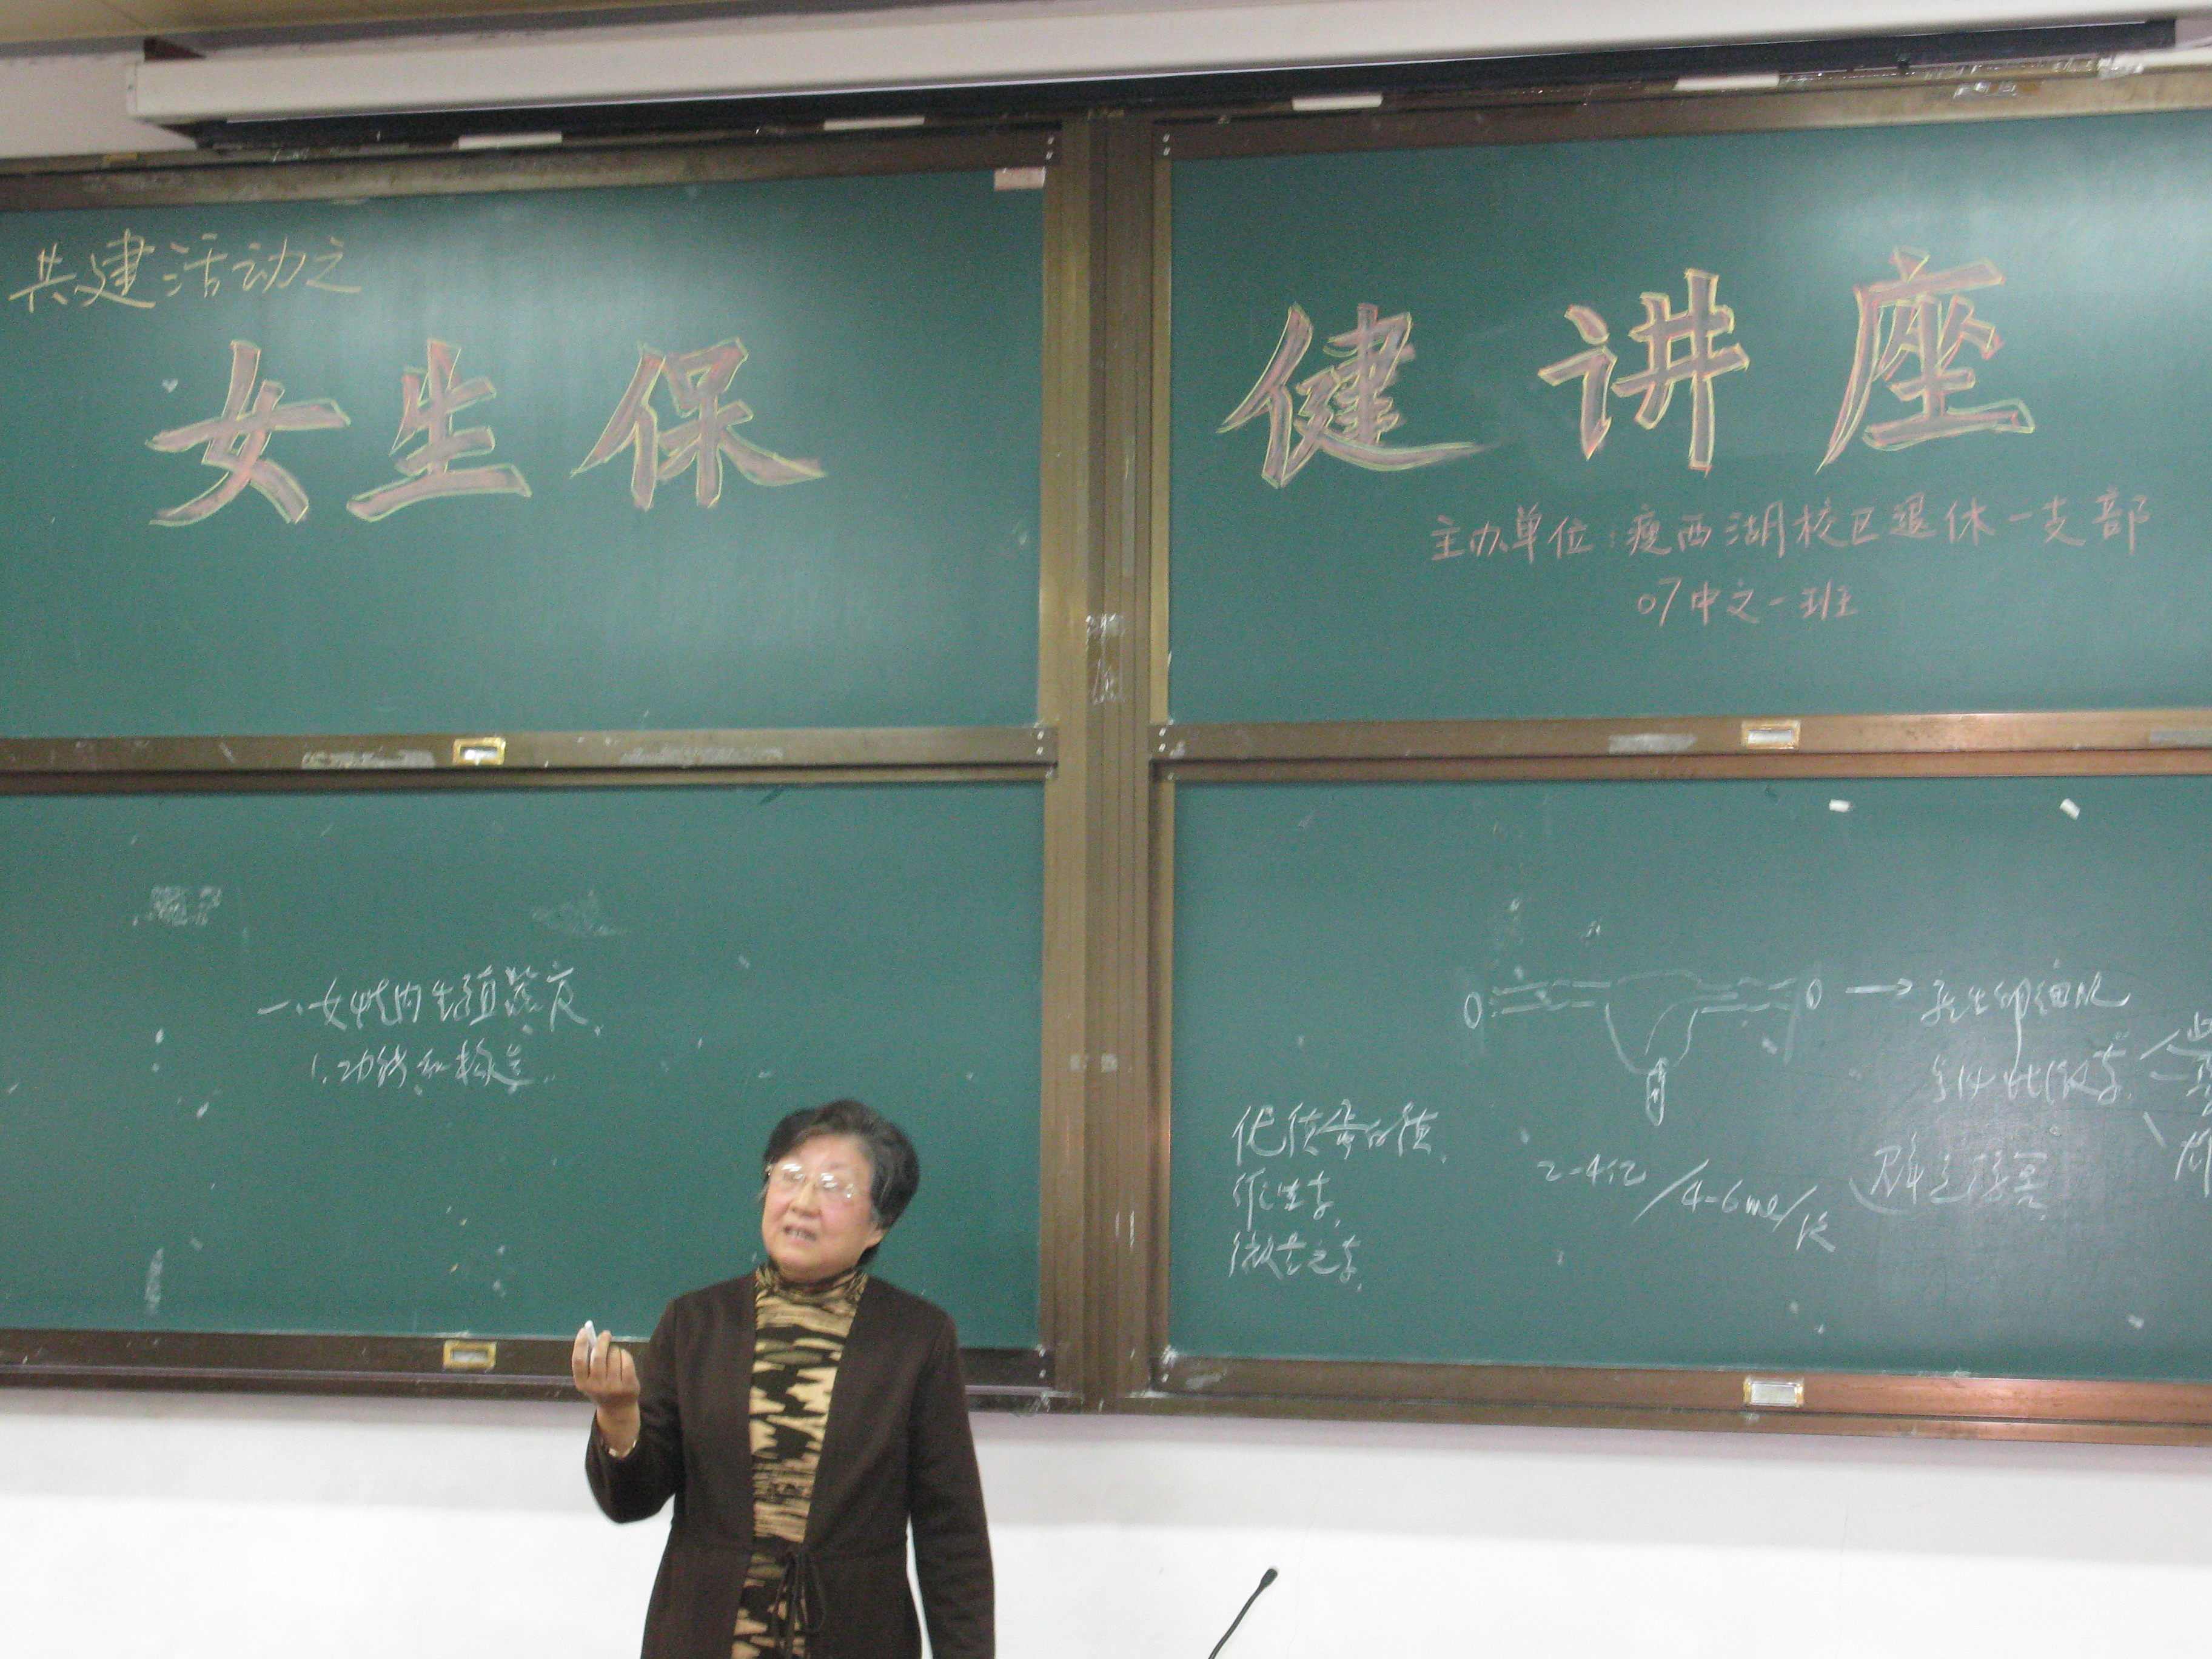 共建活动之
女生保健讲座
主办单位:瘦西湖校区退休一支部
07中文一班
一、女性内生殖器官
1.功能和构造
→产生卵细胞
优质蛋白质
维生素
微量元素
2-4亿/4-6ml/次